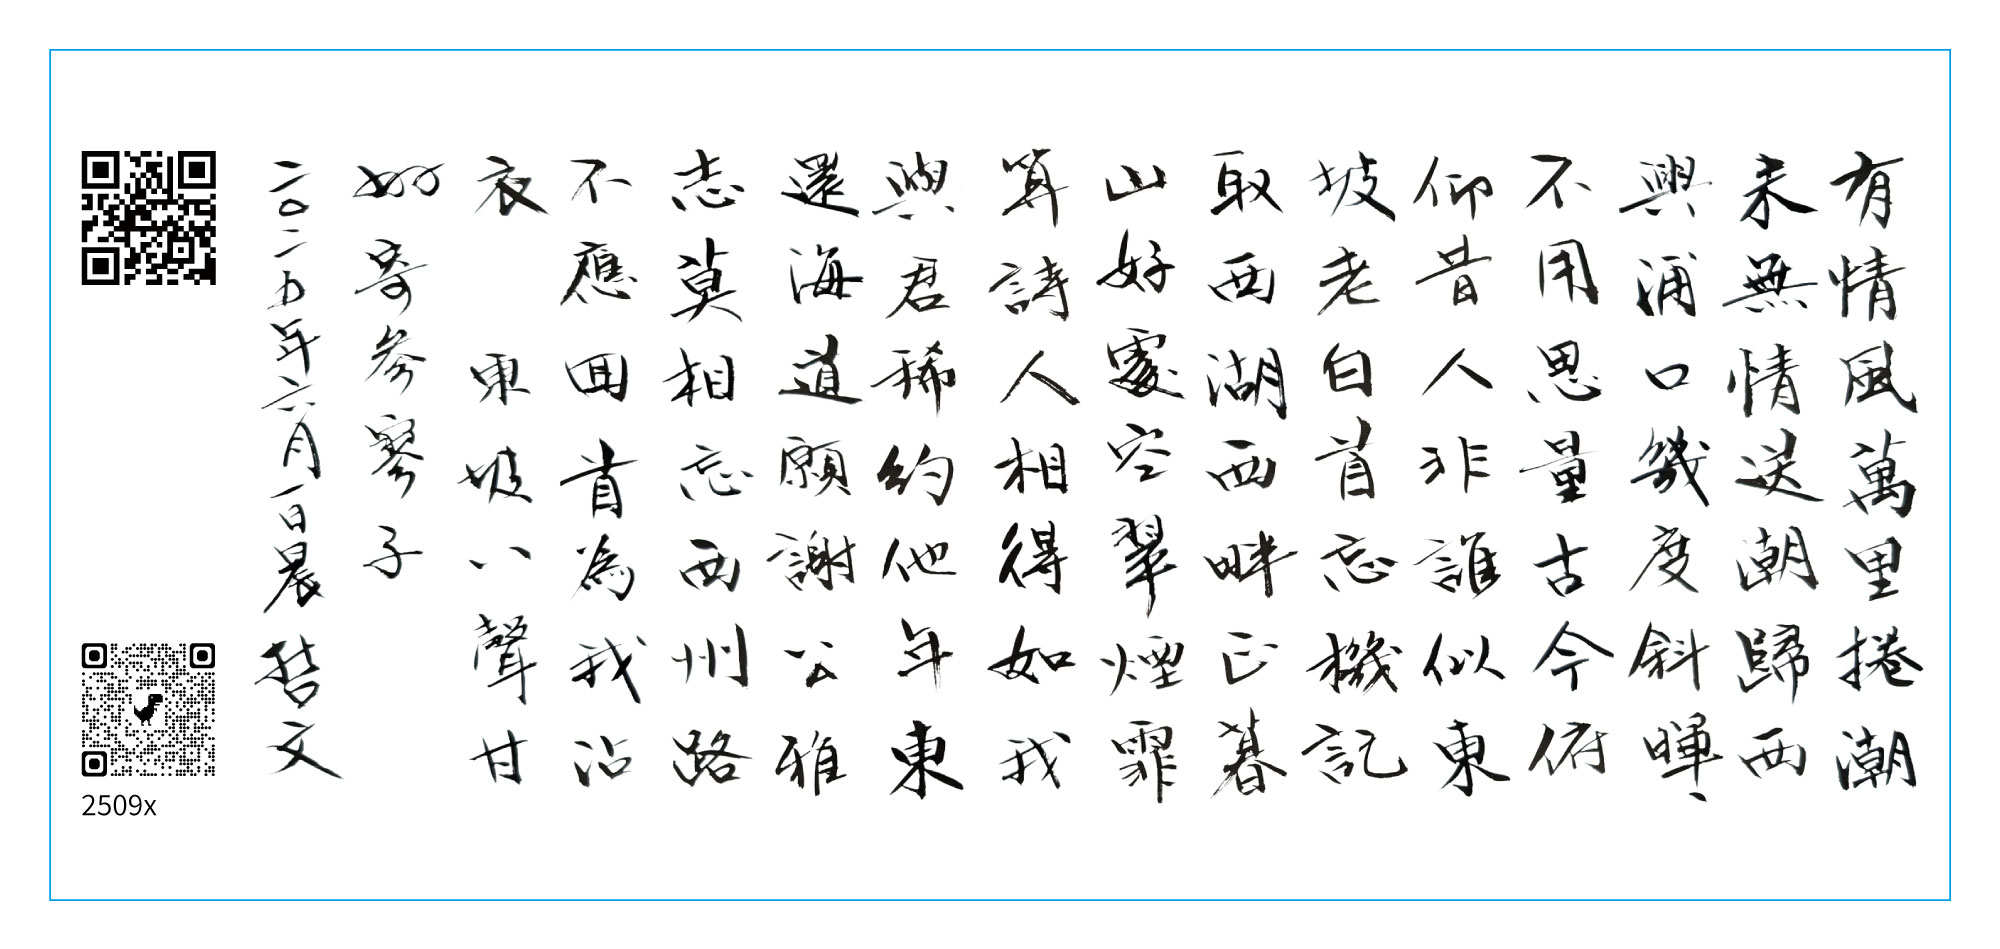 有情風萬里捲潮
来無情送潮歸西
興浦口幾度斜暉
不用思量古今俯
仰昔人非誰似東
坡老白首忘機記
取西湖西畔正暮
山好處空翠煙霏
算詩人相得如我
與君稀約他年東
還海道願謝公雅
志莫相忘西州路
不應回首為我沾
衣 東坡八聲甘
州寄參寥子
二〇二五年六月一日晨 哲文
2509x